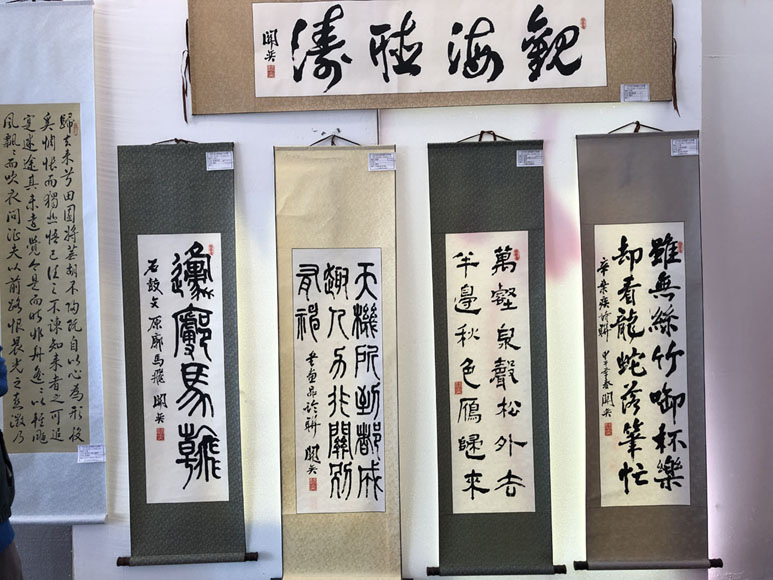 觀海聽濤
雖無絲竹啣杯樂
却看龍蛇落筆忙
辛棄疾詩聯
萬壑泉聲松外去
半邊秋色鴈歸來
天機所到都成
趣人力非關別
有神
馬
石鼓文 原廓馬飛
歸去来兮田園將蕪胡不歸既自以心為形役
奚惆悵而獨悲悟已往之不諫知来者之可追
寔迷途其未遠覺今是而昨非舟遙遙以輕颺
風飄飄而吹衣問征夫以前路恨晨光之熹微乃